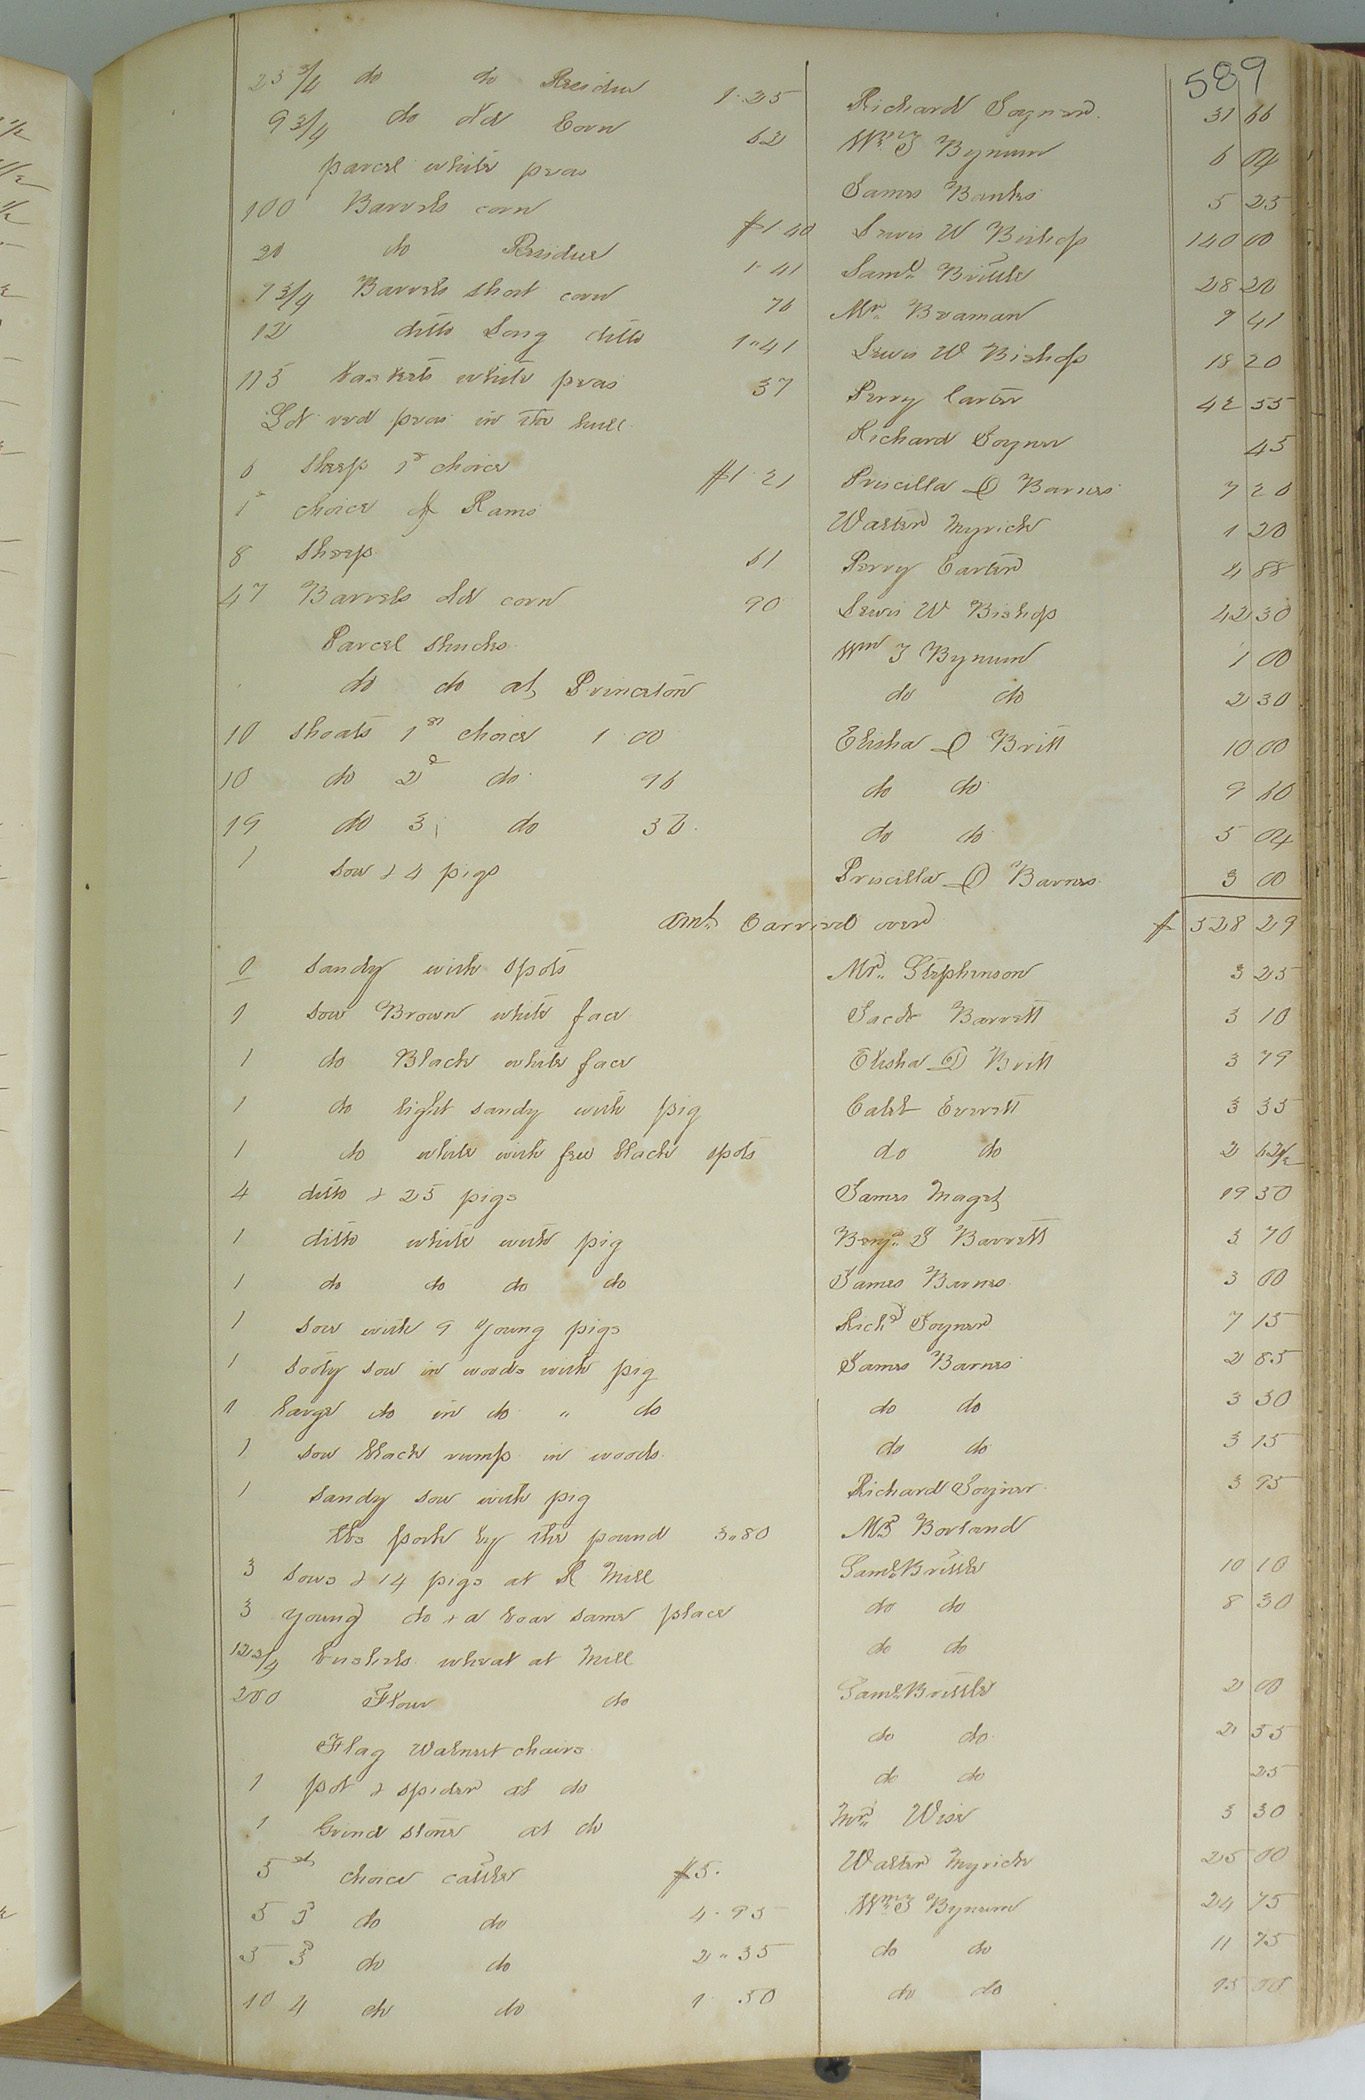 589
25 3/4 do do Residue 1.25 Richard Joyner 31 66
9 3/4 do old Corn 62 Wm J Bynum 6 04
parcel white peas James Banks 5 25
100 Barrels corn $1 40 Lewis W Bishop 140 00
20 do Residue 1.41 Saml Brittle 28 20
7 3/4 Barrels short corn 76 Mr Beaman 9 41
12 ditto Long ditto 1"41 Lewis W Bishop 18 20
115 baskets white peas 37 Perry Carter 42 55
Lot red peas in the hull Richard Joyner 45
6 sheep 1st choice $1.21 Priscilla D Barnes 7 20
1st choice of Rams Walter Myrick 1 20
8 sheep 61 Perry Carter 4 88
47 Barrels old corn 90 Lewis W Bishop 42 30
Parcel shucks Wm J Bynum 1 00
do do at Princeton do do 2 30
10 shoats 1st choice 1 00 Elisha D Britt 10 00
10 do 2d do 96 do do 9 60
19 do 3 do 36 do do 5 04
1 sow & 4 pigs Priscilla D Barnes 3 00
amt Carried over $ 528 29
sandy with spots Mr Stephenson 3 25
1 sow Brown white face Jacob Barrett 3 10
1 do Black white face Elisha D Britt 3 79
1 do light sandy with pig Caleb Everett 3 35
1 do white with few black spots do do 2 62 1/2
4 ditto & 25 pigs James Maget 19 50
1 ditto white with pig Benja J Barrett 3 70
1 do do do do James Barnes 3 00
1 sow with 9 young pigs Richd Joyner 7 15
1 sooty sow in woods with pig James Barnes 2 85
1 large do in do " do do do 3 30
1 sow black rump in woods do do 3 15
1 sandy sow with pig Richard Joyner 3 95
lbs pork by the pound 3.80 Mr Borland
3 sows & 14 pigs at R Mill Saml Brittle 10 10
3 young do & a boar same place do do 8 30
12 2/4 bushels wheat at Mill do do
200 Flour do Saml Brittle 2 00
Flag Walnut chairs do do 2 55
1 pot & spider at do do do 25
1 Grind stone at do Mr Wise 3 30
5 st choice cattle $5. Walter Myrick 25 00
5 2 do do 4.95 Wm J Bynum 24 75
5 3 do do 2"35 do do 11 75
10 4 do do 1 50 do do 15 00